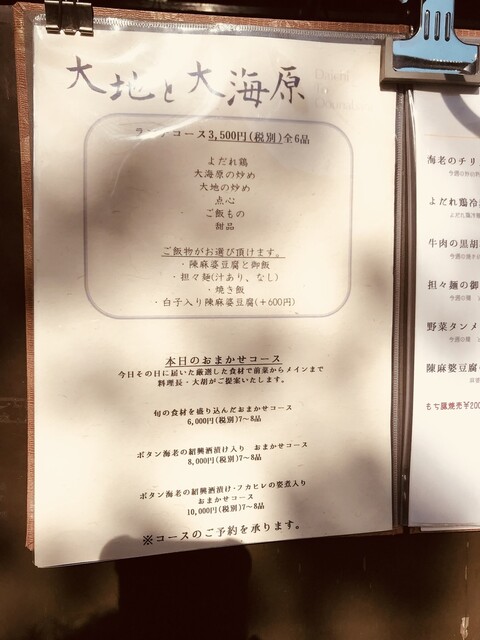 大地と大海原
Daichi
To
ランチコース3,500円(税別)全6品
よだれ鶏
大海原の炒め
大地の炒め
点心
ご飯もの
甜品
ご飯物がお選び頂けます。
・陳麻婆豆腐と御飯
・担々麺(汁あり、なし)
・焼き飯
・白子入り陳麻婆豆腐(+600円)
本日のおまかせコース
今日その日に届いた厳選した食材で前菜からメインまで
料理長・大胡がご提案いたします。
旬の食材を盛り込んだおまかせコース
6,000円(税別)7~8品
ボタン海老の紹興酒漬け入り おまかせコース
8,000円(税別)7~8品
ボタン海老の紹興酒漬け・フカヒレの姿煮入り
おまかせコース
10,000円(税別)7~8品
※コースのご予約を承ります。
海老のチリ
よだれ鶏冷
牛肉の黒胡
担々麺の御
野菜タンメ
陳麻婆豆腐
もち豚焼売¥200